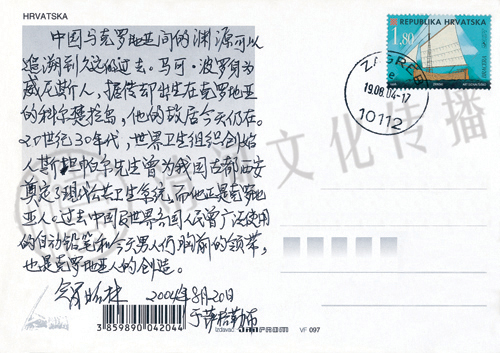 HRVATSKA
中国与克罗地亚间的渊源可以
追溯到久远的过去。马可·波罗身为
威尼斯人，据传却出生在克罗地亚
的科尔楚拉岛，他的故居今天仍在。
20世纪30年代，世界卫生组织创始
人斯坦帕尔先生曾为我国古都西安
奠定了现代公共卫生系统，而他正是克罗地
亚人。过去中国及世界各国人民曾广泛使用
的自动铅笔和今天男人们胸前的领带，
也是克罗地亚人的创造。
2004年8月20日
于萨格勒布
REPUBLIKA HRVATSKA
1,80
ZAGREB
19.08.04-17
10112
文化传播
3 859890 042044
Izdavač
VF 097